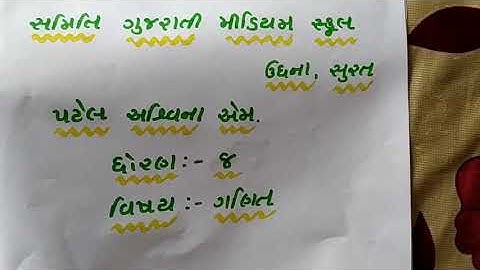 સમિતિ ગુજરાતી મીડિયમ સ્કૂલ
ઉધના, સુરત
પટેલ અશ્વિના એમ.
ધોરણ :- ૪
વિષય :- ગણિત